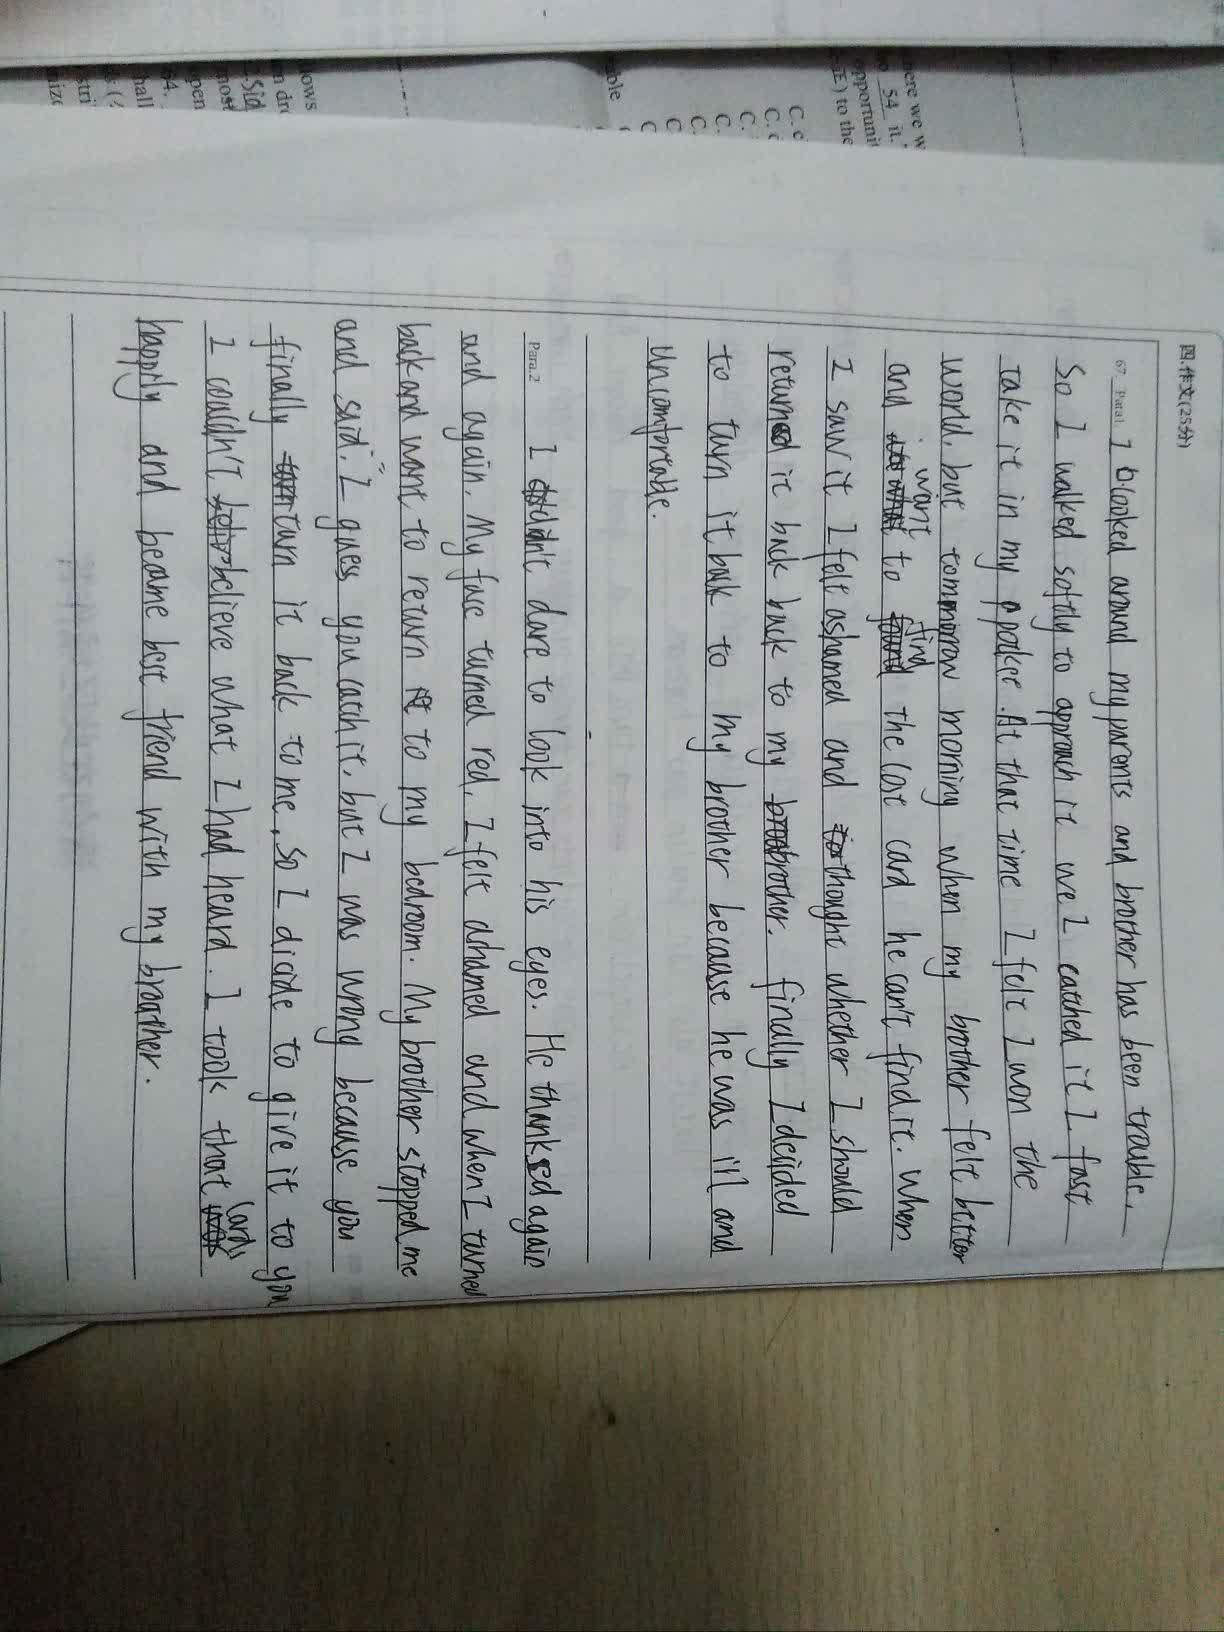 ows
n dro
Sid
most
pen
54.
hall
s. (
stri
nize
able
C
C
C.
C.
C. c
C. c
here we w
o 54 it."
opportunit
E) to the
四.作文(25分)
67. Para1. I blooked around my parents and brother has been trouble.
So I walked softly to approach it we I catched it I fast
take it in my ppaker. At that time I felt I won the
world. but tommorow morning when my brother felt better
and want to find the lost card he can't find it. when
I saw it I felt ashamed and thought whether I should
returned it back back to my brother. finally I decided
to turn it back to my brother because he was ill and
uncomfortable.
Para.2 I didn't dare to look into his eyes. He thanked again
and again. My face turned red. I felt ashamed and when I turned
back and want to return it to my bedroom. My brother stopped me
and said. "I guess you catch it. but I was wrong because you
finally turn it back to me, so I dicide to give it to you
I couldn't believe what I had heard. I took that cards
happily and became best friend with my broather.